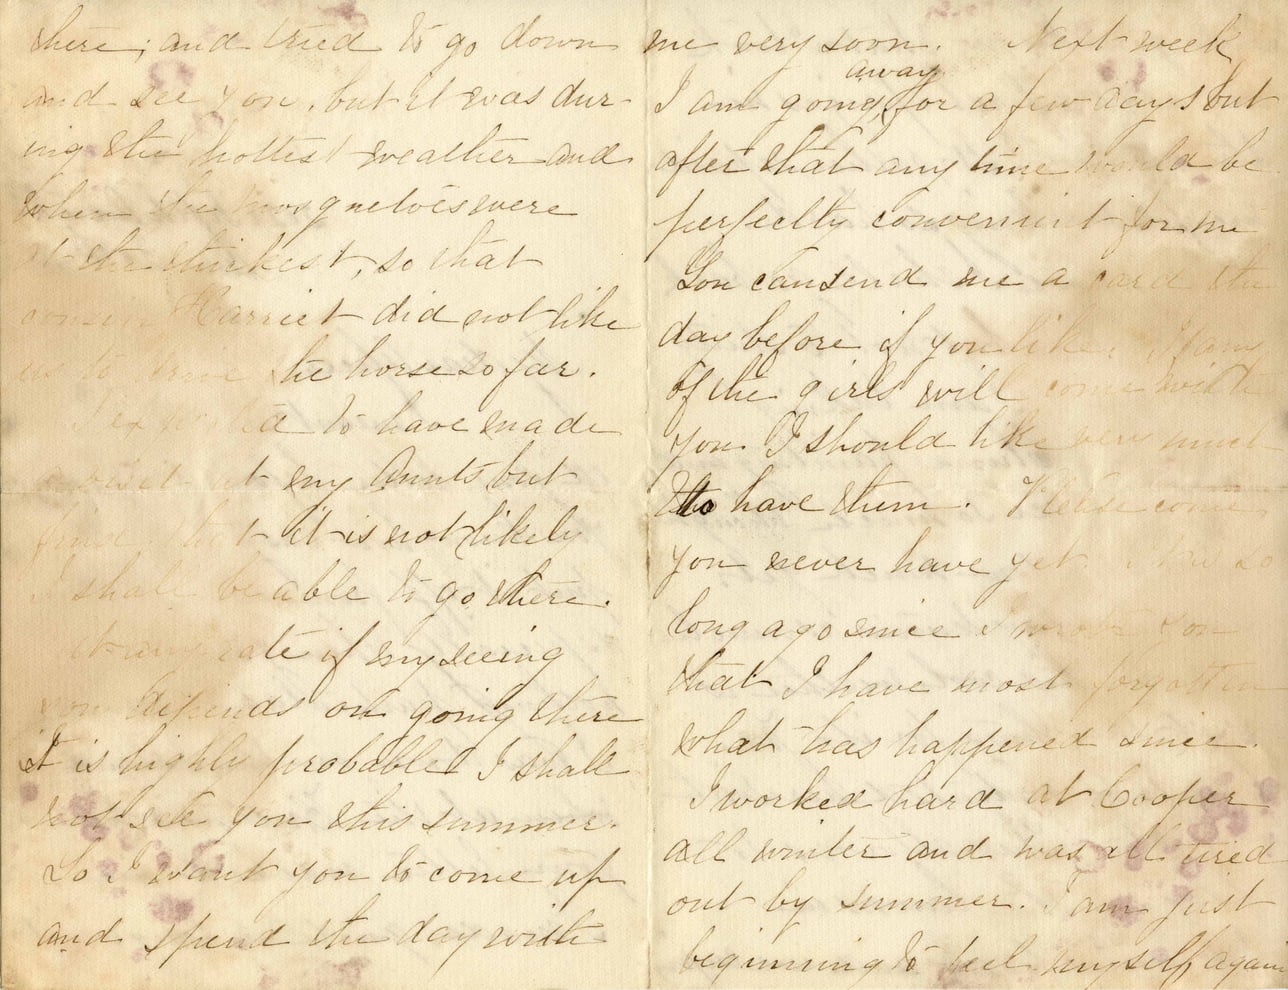 there; and tried to go down
and see you, but it was dur-
ing the hottest weather and
when the mosquetoes were
at the thickest, so that
cousin Harriet did not like
us to drive the horse so far.
I expected to have made
a visit at my Aunts but
find that it is not likely
I shall be able to go there.
At any rate if my seeing
you depends on going there
it is highly probable I shall
not see you this summer.
So I want you to come up
and spend the day with
me very soon. Next week
I am going away for a few days but
after that any time would be
perfectly convenient for me
You can send me a card the
day before if you like. If any
of the girls will come with
you I should like very much
to have them. Please come
you never have yet. so
long ago since I wrote you
that I have most forgotten
what has happened since.
I worked hard at Cooper
all winter and was all tired
out by summer. I am just
beginning to feel myself again